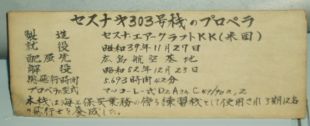 セスナ機303号機のプロペラ
製造 セスナエアークラフトKK(米国)
就役 昭和39年11月27日
配属先 広島航空基地
解役 昭和52年12月23日
飛行時間 5,693時間42分
プロペラ型式 マッコーレ式D2A34C
本機は海上保安業務の傍ら練習機として使用され
飛行士を養成した。